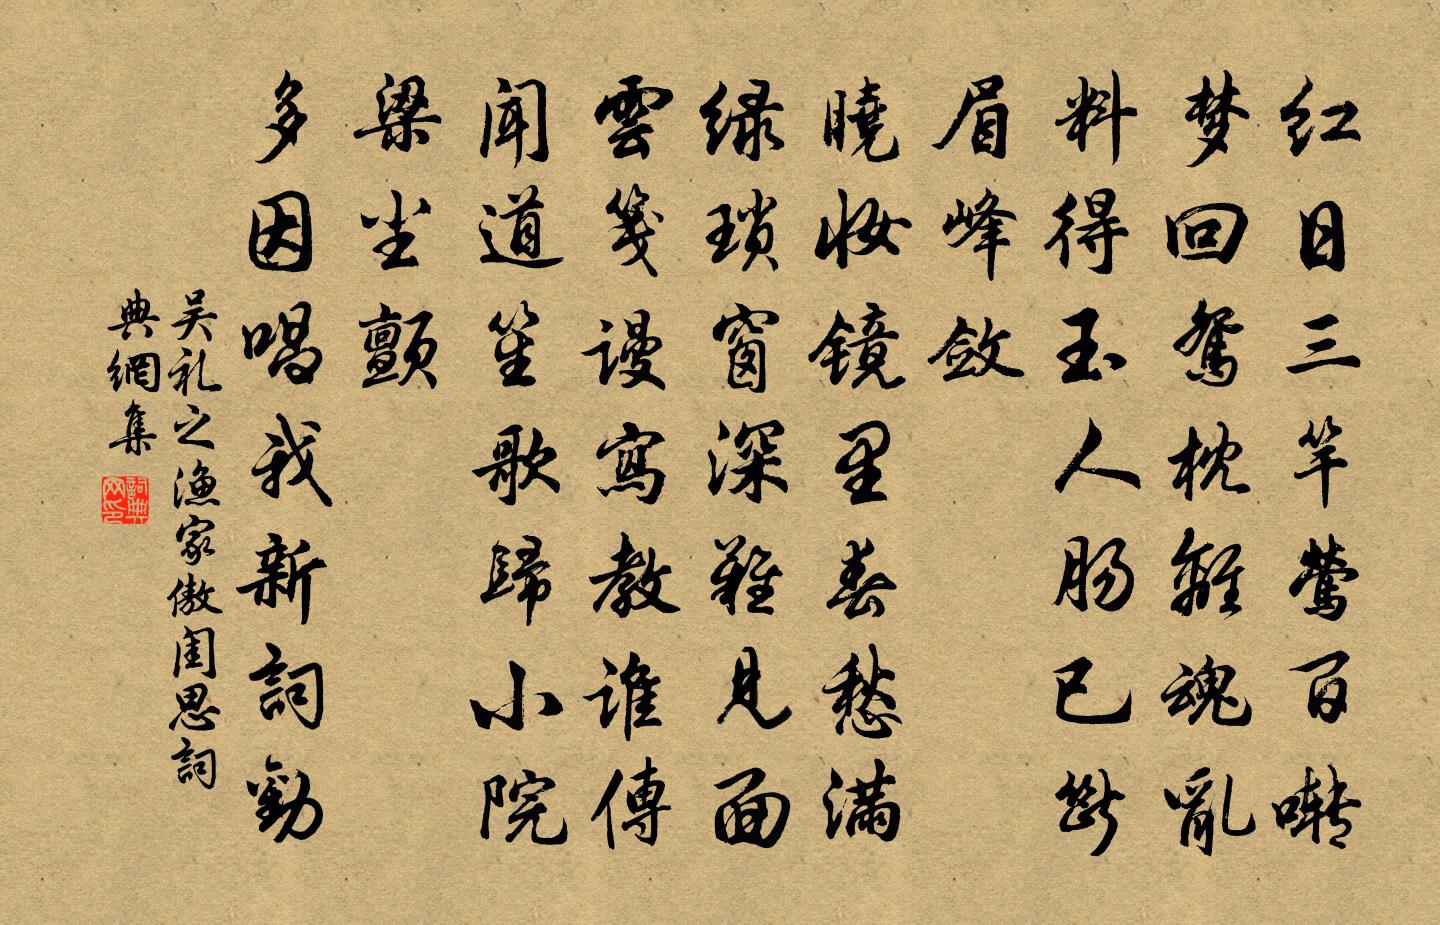 红日三竿莺百啭
梦回鸳枕離魂亂
料得玉人肠已断
眉峰敛
曉妆镜里春愁满
绿琐窗深難见面
雲笺谩寫教谁傳
闻道笙歌歸小院
梁尘颤
多因唱我新詞勸
吴礼之渔家傲闺思詞
典網集
詞典网印